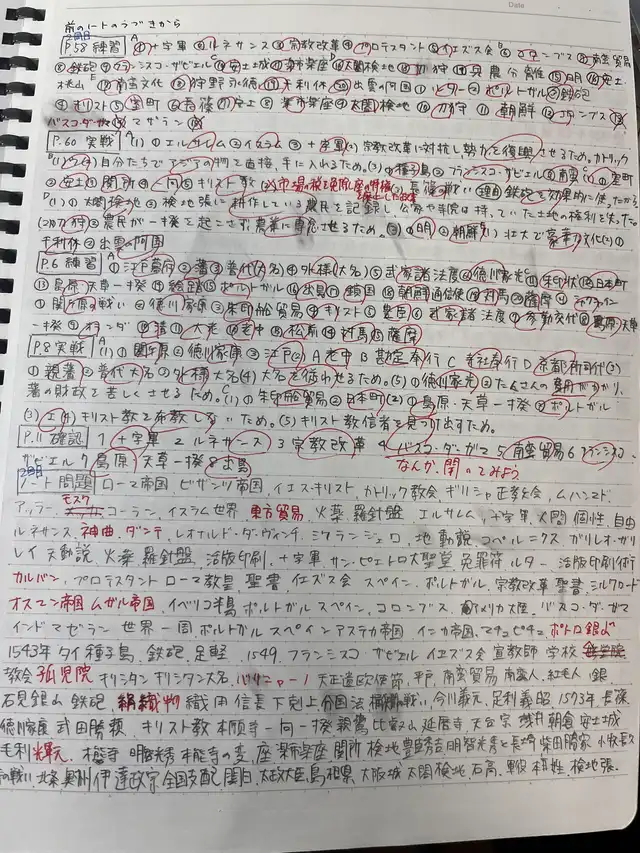 Date
前のノートのつづきから
2回目
P.58 練習 A ①十字軍 ②ルネサンス ③宗教改革 ④プロテスタント ⑤イエズス会 B ⑥コロンブス ⑦南蛮貿易
⑧鉄砲 ⑨フランシスコ・ザビエル ⑩安土城 ⑪楽市楽座 D ⑫太閤検地 ⑬刀狩 ⑭兵農分離 ⑮明 ⑯安土
桃山 E ⑰南蛮文化 ⑱狩野永徳 ⑲千利休 ⑳出雲の阿国 ①ルター ②ポルトガル ③鉄砲
④キリスト ⑤室町 ⑥長篠 ⑦安土 ⑧楽市楽座 ⑨太閤検地 ⑩刀狩 ⑪朝鮮 ⑫コロンブス ⑬
バスコ・ダ・ガマ ⑭マゼラン
P.60 実戦 (1)①エルサレム ②イスラム ③十字軍 (2)宗教改革に対抗し勢力を復興させるため。カトリック
自分たちでアジアの物を直接、手に入れるため。(3)①種子島 ②フランシスコ・ザビエル ③南蛮 ①室町
②安土 ③関所 ④一向 ⑤キリスト教 (2)市場の税を免除し座の特権を廃止した政策 (3)長篠の戦い 理由 鉄砲を効果的に使ったから。
(1)①太閤検地 ②検地帳に耕作している農民を記録し、公家や寺院は持っていた土地の権利を失った。
(2)刀狩 ②農民が一揆を起こさず農業に専念させるため。(3)①明 ②朝鮮 (1)壮大で豪華な文化 (2)①
千利休 ②出雲の阿国
P.6 練習 A ①江戸幕府 ②藩 ③譜代(大名) ④外様(大名) ⑤武家諸法度 ⑥徳川家光 朱印状 日本町
島原天草一揆 ④絵踏 ⑮ポルトガル ⑯出島 ⑰鎖国 ⑱朝鮮通信使 ⑲対馬 ⑳薩摩
①関ヶ原の戦い ②徳川家康 ③朱印船貿易 ④キリスト ⑤豊臣 ⑥武家諸法度 ⑦参勤交代 ⑧島原天草
一揆 ⑨オランダ ⑩藩 ⑪大老 ⑫老中 ⑬松前 ⑭対馬 ⑮薩摩
P.8 実戦 A (1)①関ヶ原 ②徳川家康 ③江戸 (2)A老中 B勘定奉行 C寺社奉行 D京都所司代 (3)
①親藩 ②譜代大名 ③外様大名 (4)大名を従わせるため。(5)①徳川家光 ②たくさんの費用がかかり、
藩の財政を苦しくさせるため。(1)①朱印船貿易 ②日本町 (2)①島原・天草一揆 ②ポルトガル
(3)キリスト教を布教しないため。(5)キリスト教信者を見つけ出すため。
P.11 確認 1 十字軍 2 ルネサンス 3 宗教改革 4 バスコ・ダ・ガマ 5 南蛮貿易 6 フランシスコ・
ザビエル 7 島原 天草一揆 8 出島 なんか、聞いてみよう
2回目
ノート問題 ローマ帝国 ビザンツ帝国 イエス・キリスト カトリック教会 ギリシャ正教会 ムハンマド、
アッラー、モスク コーラン、イスラム世界、東方貿易、火薬、羅針盤 エルサレム、十字軍、人間、個性、自由
ルネサンス、神曲、ダンテ、レオナルド・ダ・ヴィンチ、ミケランジェロ、地動説、コペルニクス、ガリレオ・ガリ
レイ 天動説、火薬、羅針盤、活版印刷、十字軍 サン・ピエトロ大聖堂 免罪符、ルター、活版印刷術
カルバン、プロテスタント ローマ教皇、聖書、イエズス会、スペイン、ポルトガル、宗教改革 聖書、シルクロード
オスマン帝国 ムガル帝国、イベリコ半島 ポルトガル スペイン、コロンブス 南アメリカ大陸、バスコ・ダ・ガマ
インド マゼラン 世界一周 ポルトガル スペイン アステカ帝国、インカ帝国、マチュピチュ、ポトシ銀山
1543年 タイ 種子島、鉄砲、足軽、1549、フランシスコ・ザビエル イエズス会 宣教師 学校
教会 孤児院 キリシタン キリシタン大名、バリニャーノ 天正遣欧使節、平戸、南蛮貿易 南蛮人、紅毛人 銀
石見銀山 鉄砲 絹織物 織田信長 下剋上 分国法 桶狭間の戦い、今川義元、足利義昭、1573年、長篠、
徳川家康 武田勝頼 キリスト教 本願寺 一向一揆 比叡山 延暦寺 天台宗 浅井 朝倉 安土城
毛利輝元、本能寺 明智光秀 本能寺の変、座 楽市楽座 関所 検地 豊臣秀吉 明智光秀 長崎 柴田勝家 小牧長久
手の戦い、北条 奥州 伊達政宗 全国支配 関白、太政大臣 大阪城 太閤検地 石高 検地帳、